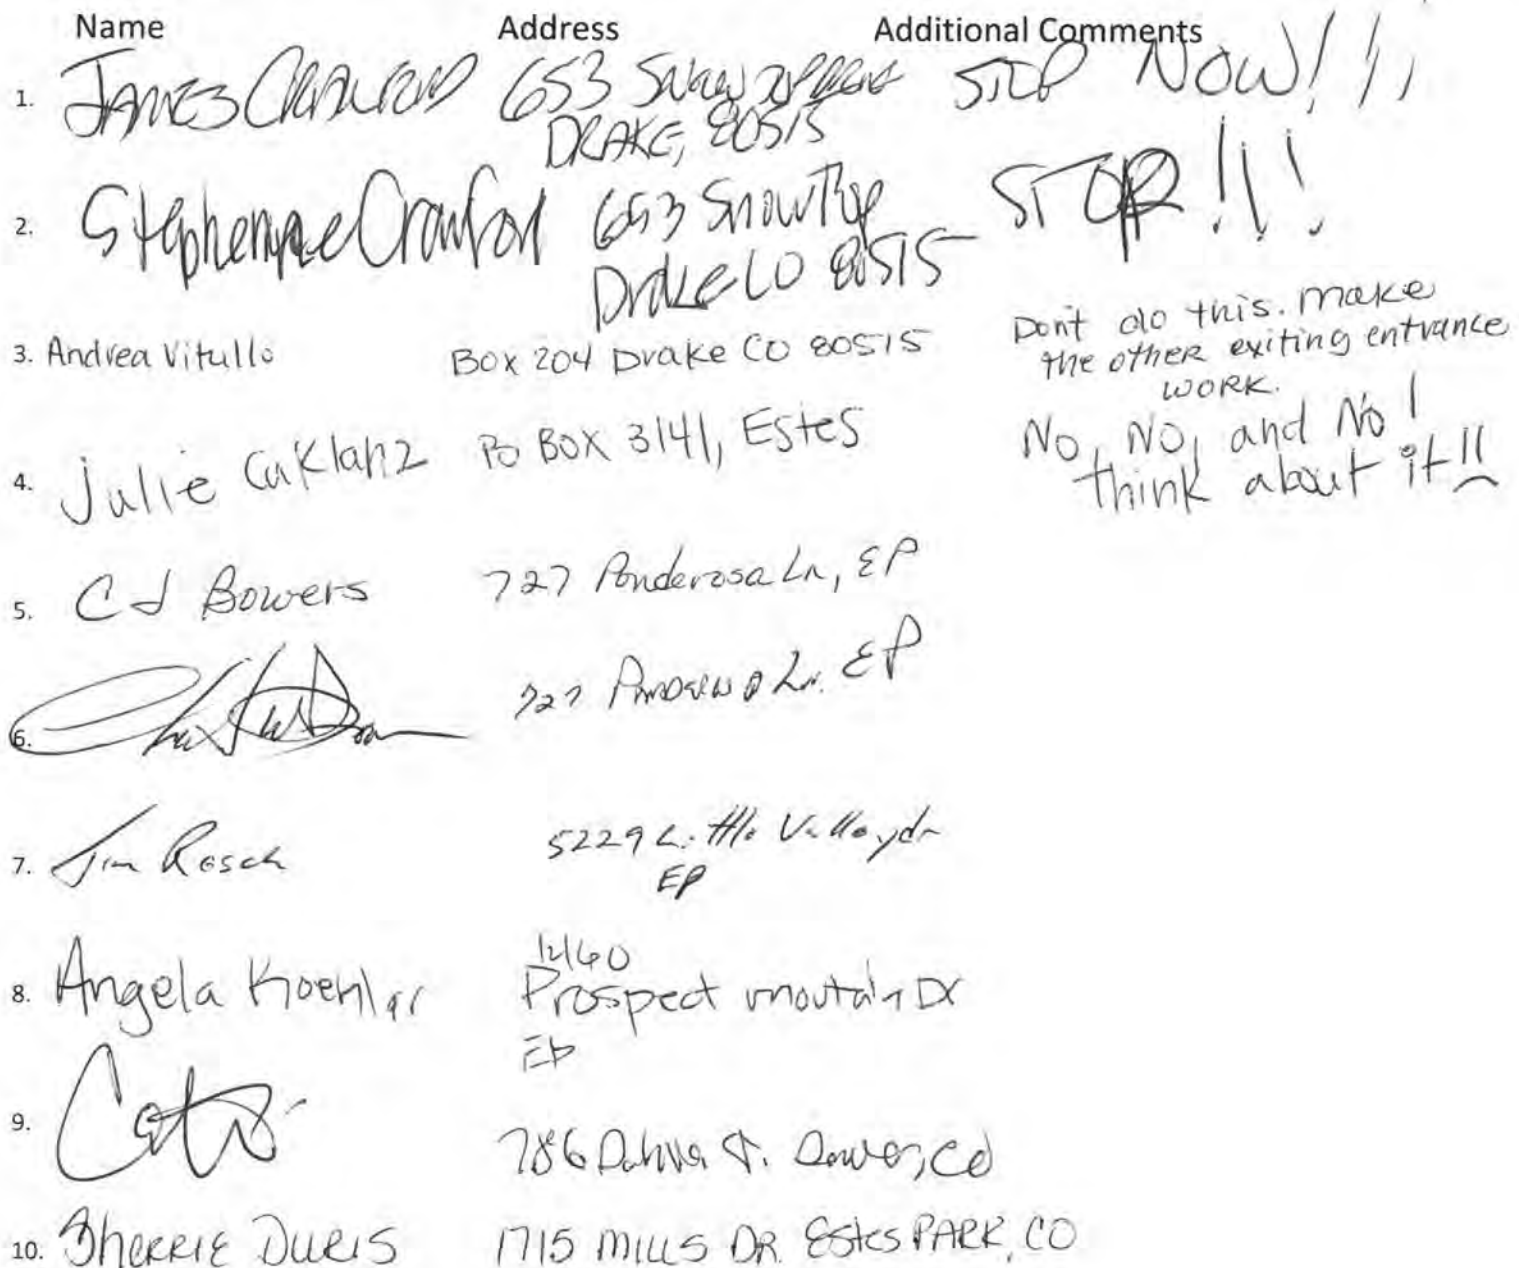 Name Address Additional Comments
1. JAMES CRAWFORD 653 Snow Top Drive STOP NOW!!!
DRAKE, 80515
2. Stephennee Crawford 653 SnowTop STOP!!!
Drake CO 80515
3. Andrea Vitullo Box 204 Drake CO 80515 Don't do this. make
the other exiting entrance
WORK.
4. Julie Caklanz Po Box 3141, Estes No, NO, and No!
think about it!!
5. CJ Bowers 727 Ponderosa Ln, EP
6. 727 Ln. EP
7. Jim Rosch 5229 Little Valley dr
EP
8. Angela Koehler 1260
Prospect moutain Dr
EP
9. 786 Dahlia St. Denver, CO
10. Sherrie Duris 1715 Mills DR. Estes PARK, CO